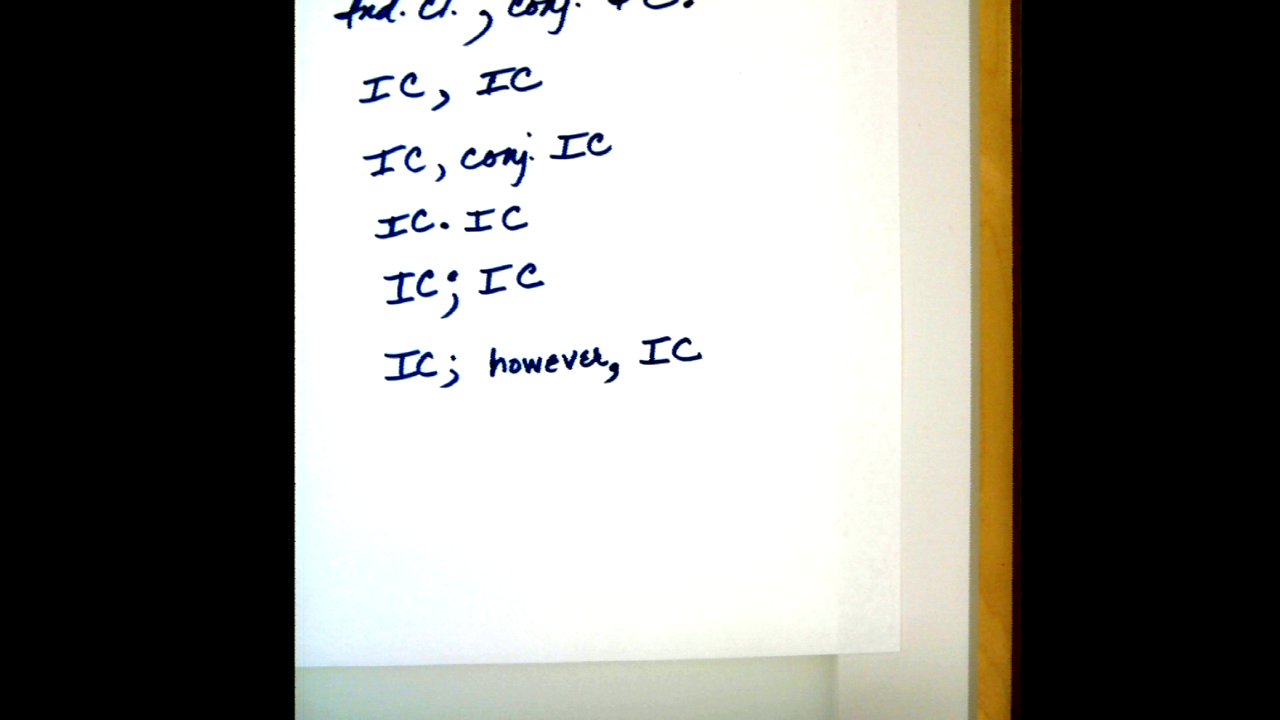 Ind. Cl., conj.
IC, IC
IC, conj. IC
IC. IC
IC; IC
IC; however, IC